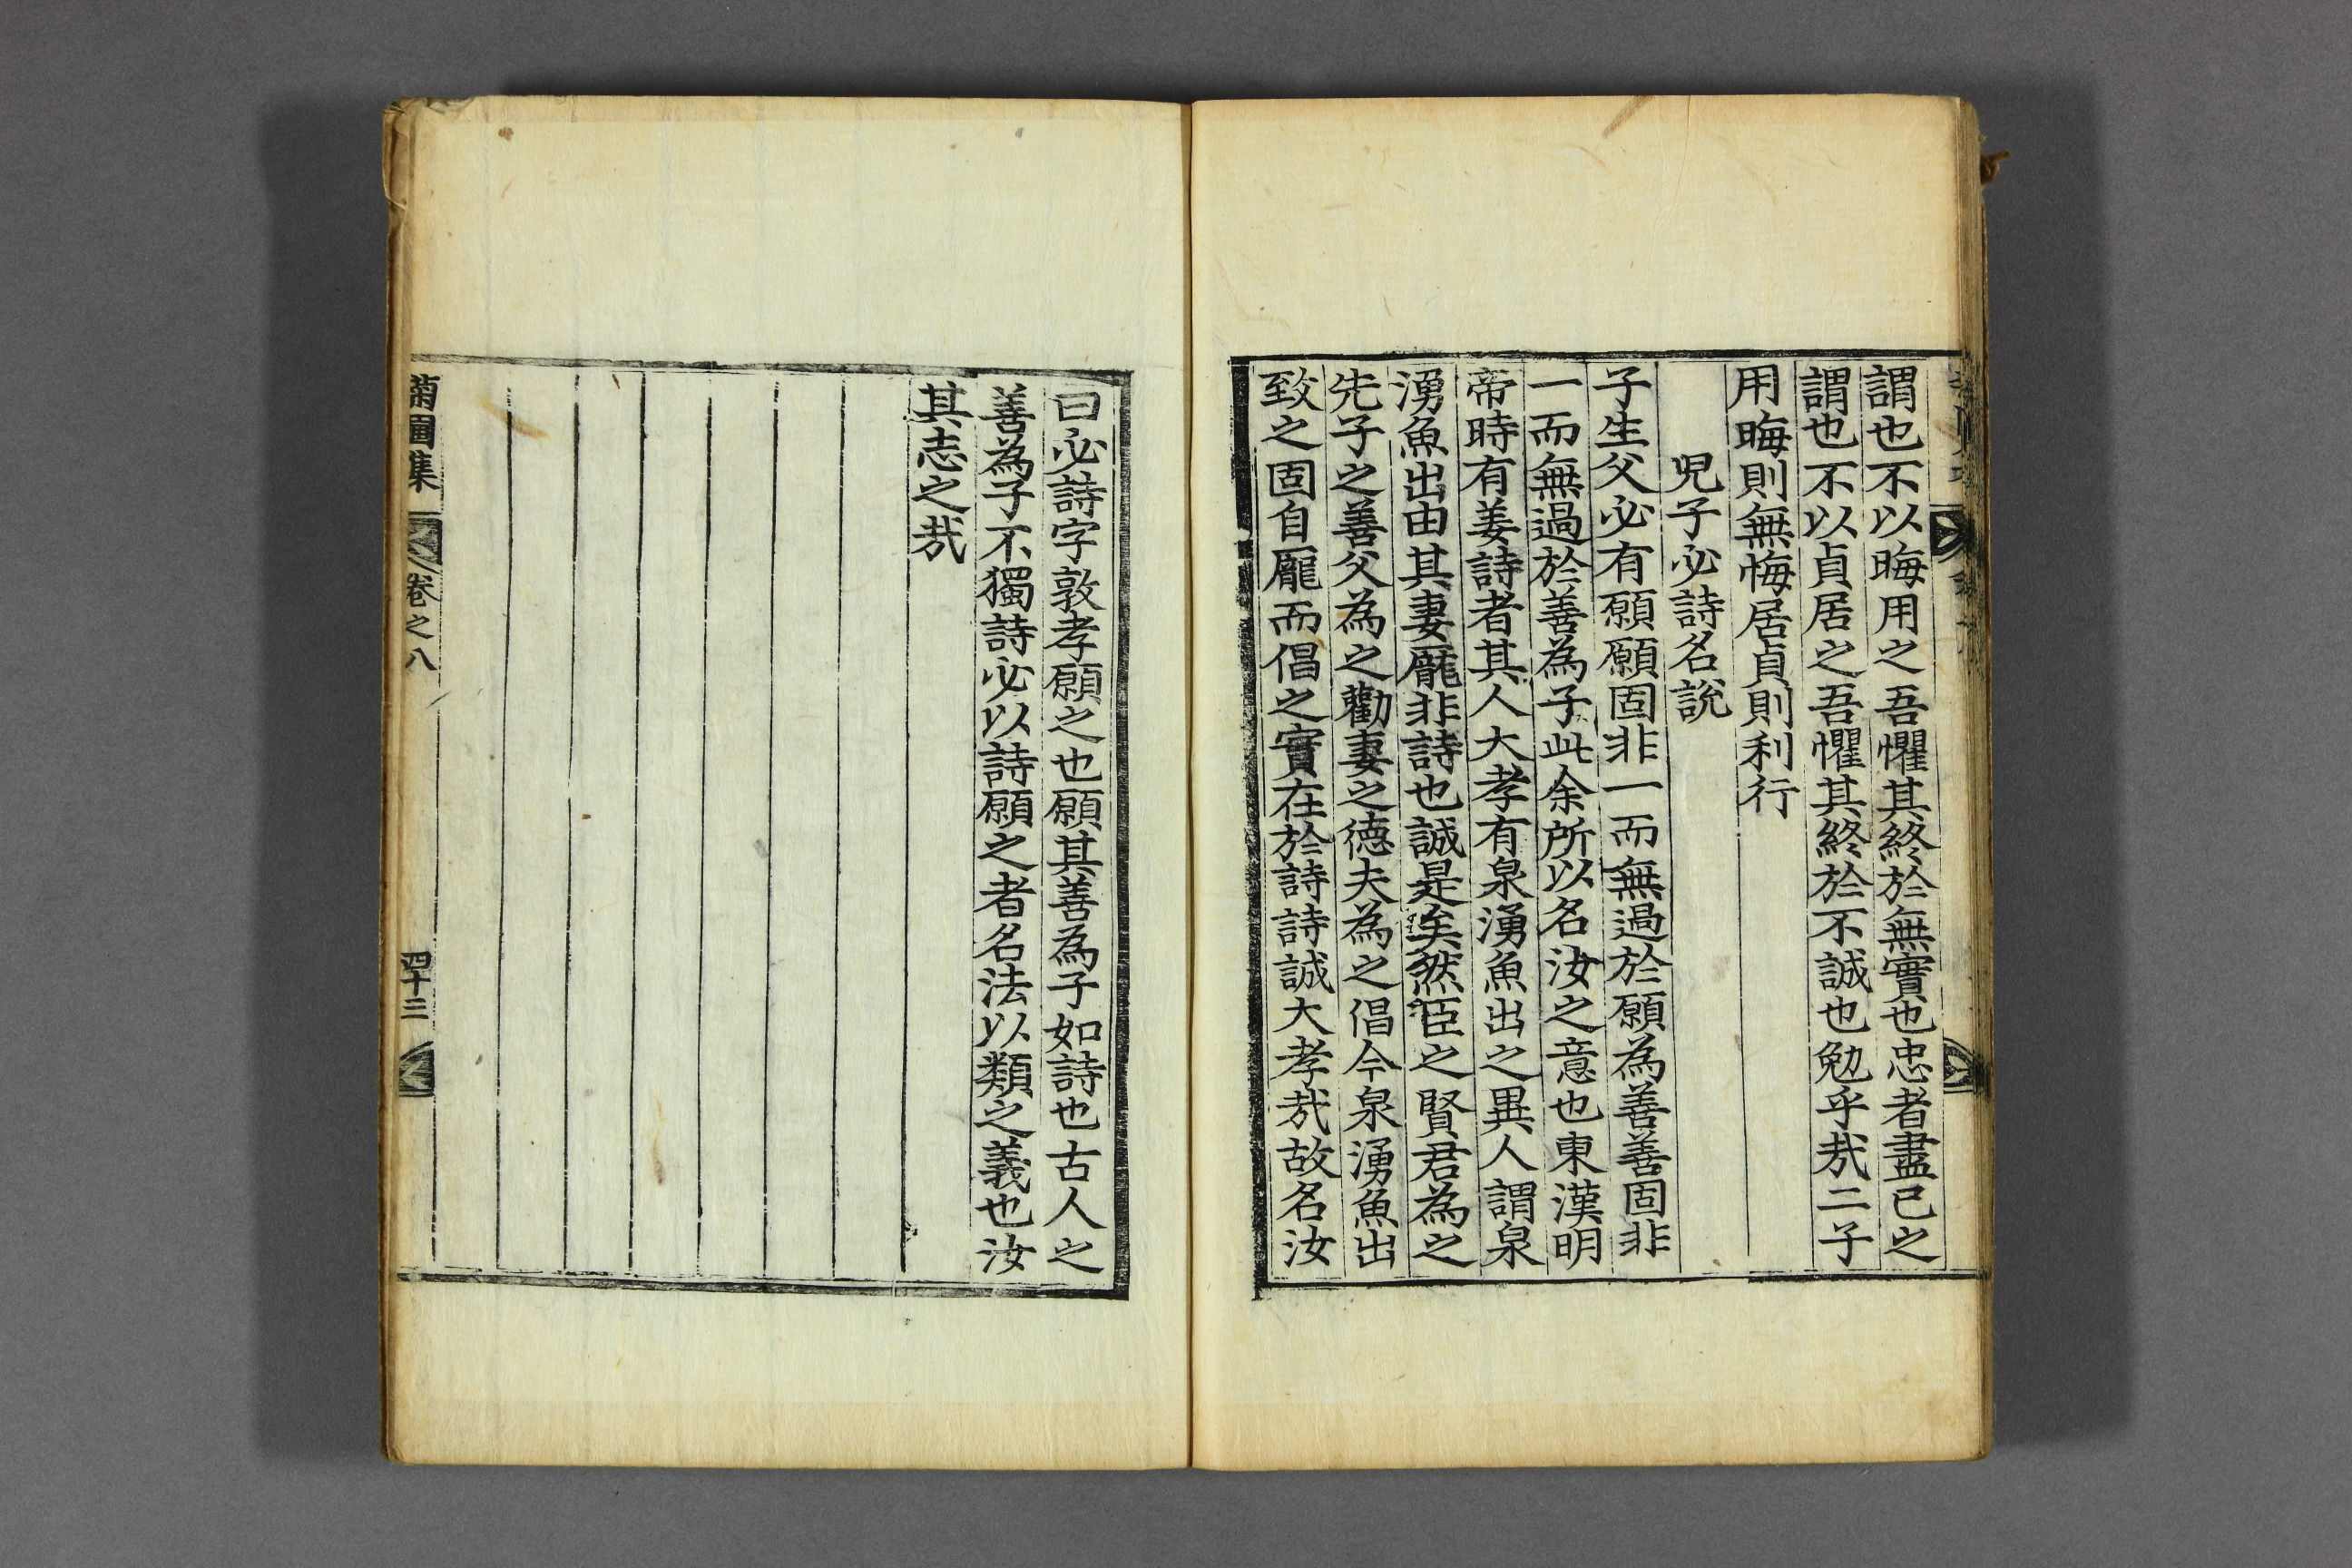 謂也不以晦用之吾懼其終於無實也忠者盡已之
謂也不以貞居之吾懼其終於不誠也勉乎㢤二子
用晦則無悔居貞則利行
兒子必詩名說
子生父必有願願固非一而無過於願為善善固非
一而無過於善為子此余所以名汝之意也東漢明
帝時有姜詩者其人大孝有泉湧魚出之異人謂泉
湧魚出由其妻龐非詩也誠是矣然臣之賢君為之
先子之善父為之勸妻之德夫為之倡今泉湧魚出
致之固自龐而倡之實在於詩詩誠大孝㢤故名汝
曰必詩字敦孝願之也願其善為子如詩也古人之
善為子不獨詩必以詩願之者名法以類之義也汝
其志之㢤
菊圃集 卷之八 四十三